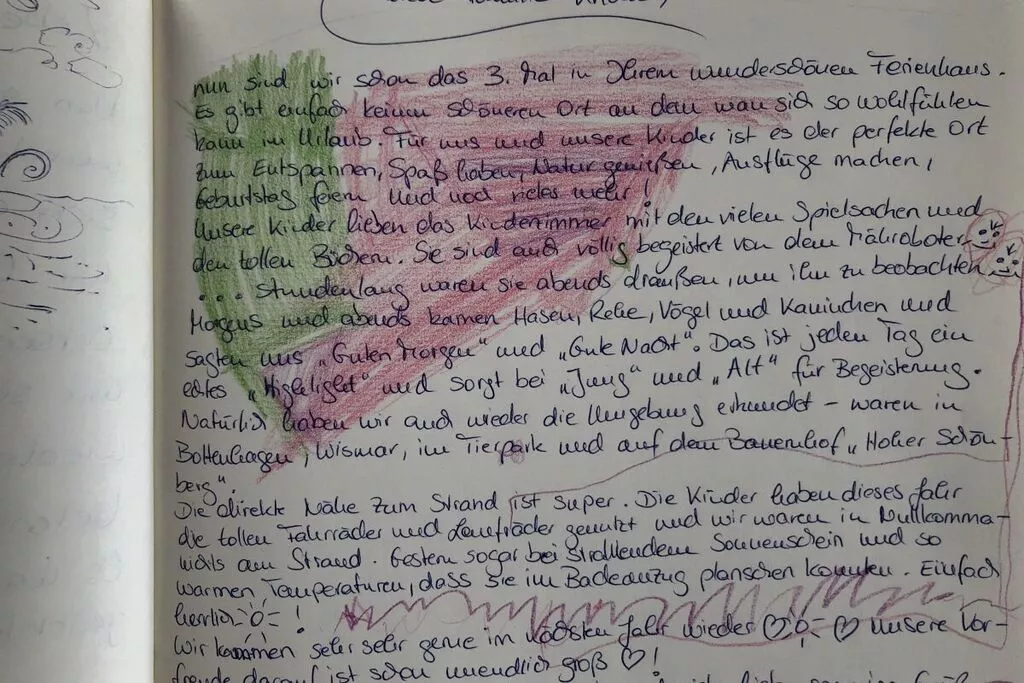 nun sind wir schon das 3. Mal in Ihrem wunderschönen Ferienhaus.
Es gibt einfach keinen schöneren Ort an dem man sich so wohlfühlen
kann im Urlaub. Für uns und unsere Kinder ist es der perfekte Ort
zum Entspannen, Spaß haben, Natur genießen, Ausflüge machen,
Geburtstag feiern und noch vieles mehr!
Unsere Kinder lieben das Kinderzimmer mit den vielen Spielsachen und
den tollen Büchern. Sie sind auch völlig begeistert von dem Mähroboter
... stundenlang waren sie abends draußen, um ihn zu beobachten
Morgens und abends kamen Hasen, Rehe, Vögel und Kaninchen und
sagten uns „Guten Morgen" und „Gute Nacht". Das ist jeden Tag ein
echtes „Highlight" und sorgt bei „Jung" und „Alt" für Begeisterung.
Natürlich haben wir auch wieder die Umgebung erkundet – waren in
Boltenhagen, Wismar, im Tierpark und auf dem Bauernhof „Hoher Schön-
berg".
Die direkte Nähe zum Strand ist super. Die Kinder haben dieses Jahr
die tollen Fahrräder und Laufräder genutzt und wir waren in Nullkomma-
nichts am Strand. Gestern sogar bei strahlendem Sonnenschein und so
warmen Temperaturen, dass sie im Badeanzug planschen konnten. Einfach
herrlich !
Wir kommen sehr sehr gerne im nächsten Jahr wieder ♡ ♡ unsere Vor-
freude darauf ist schon unendlich groß ♡!